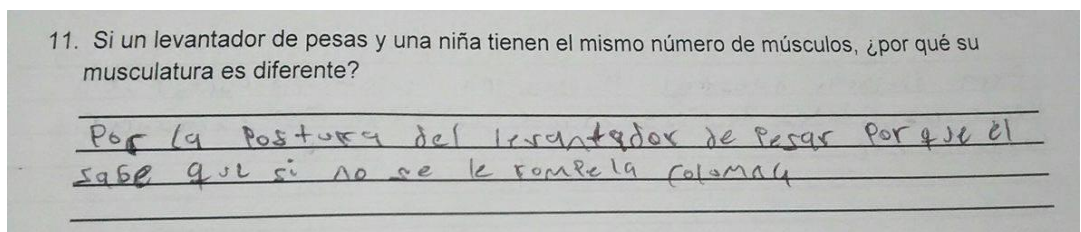 11. Si un levantador de pesas y una niña tienen el mismo número de músculos, ¿por qué su
musculatura es diferente?
Por la Postura del levantador de Pesas Por que el
sabe que si no se le rompe la coloma